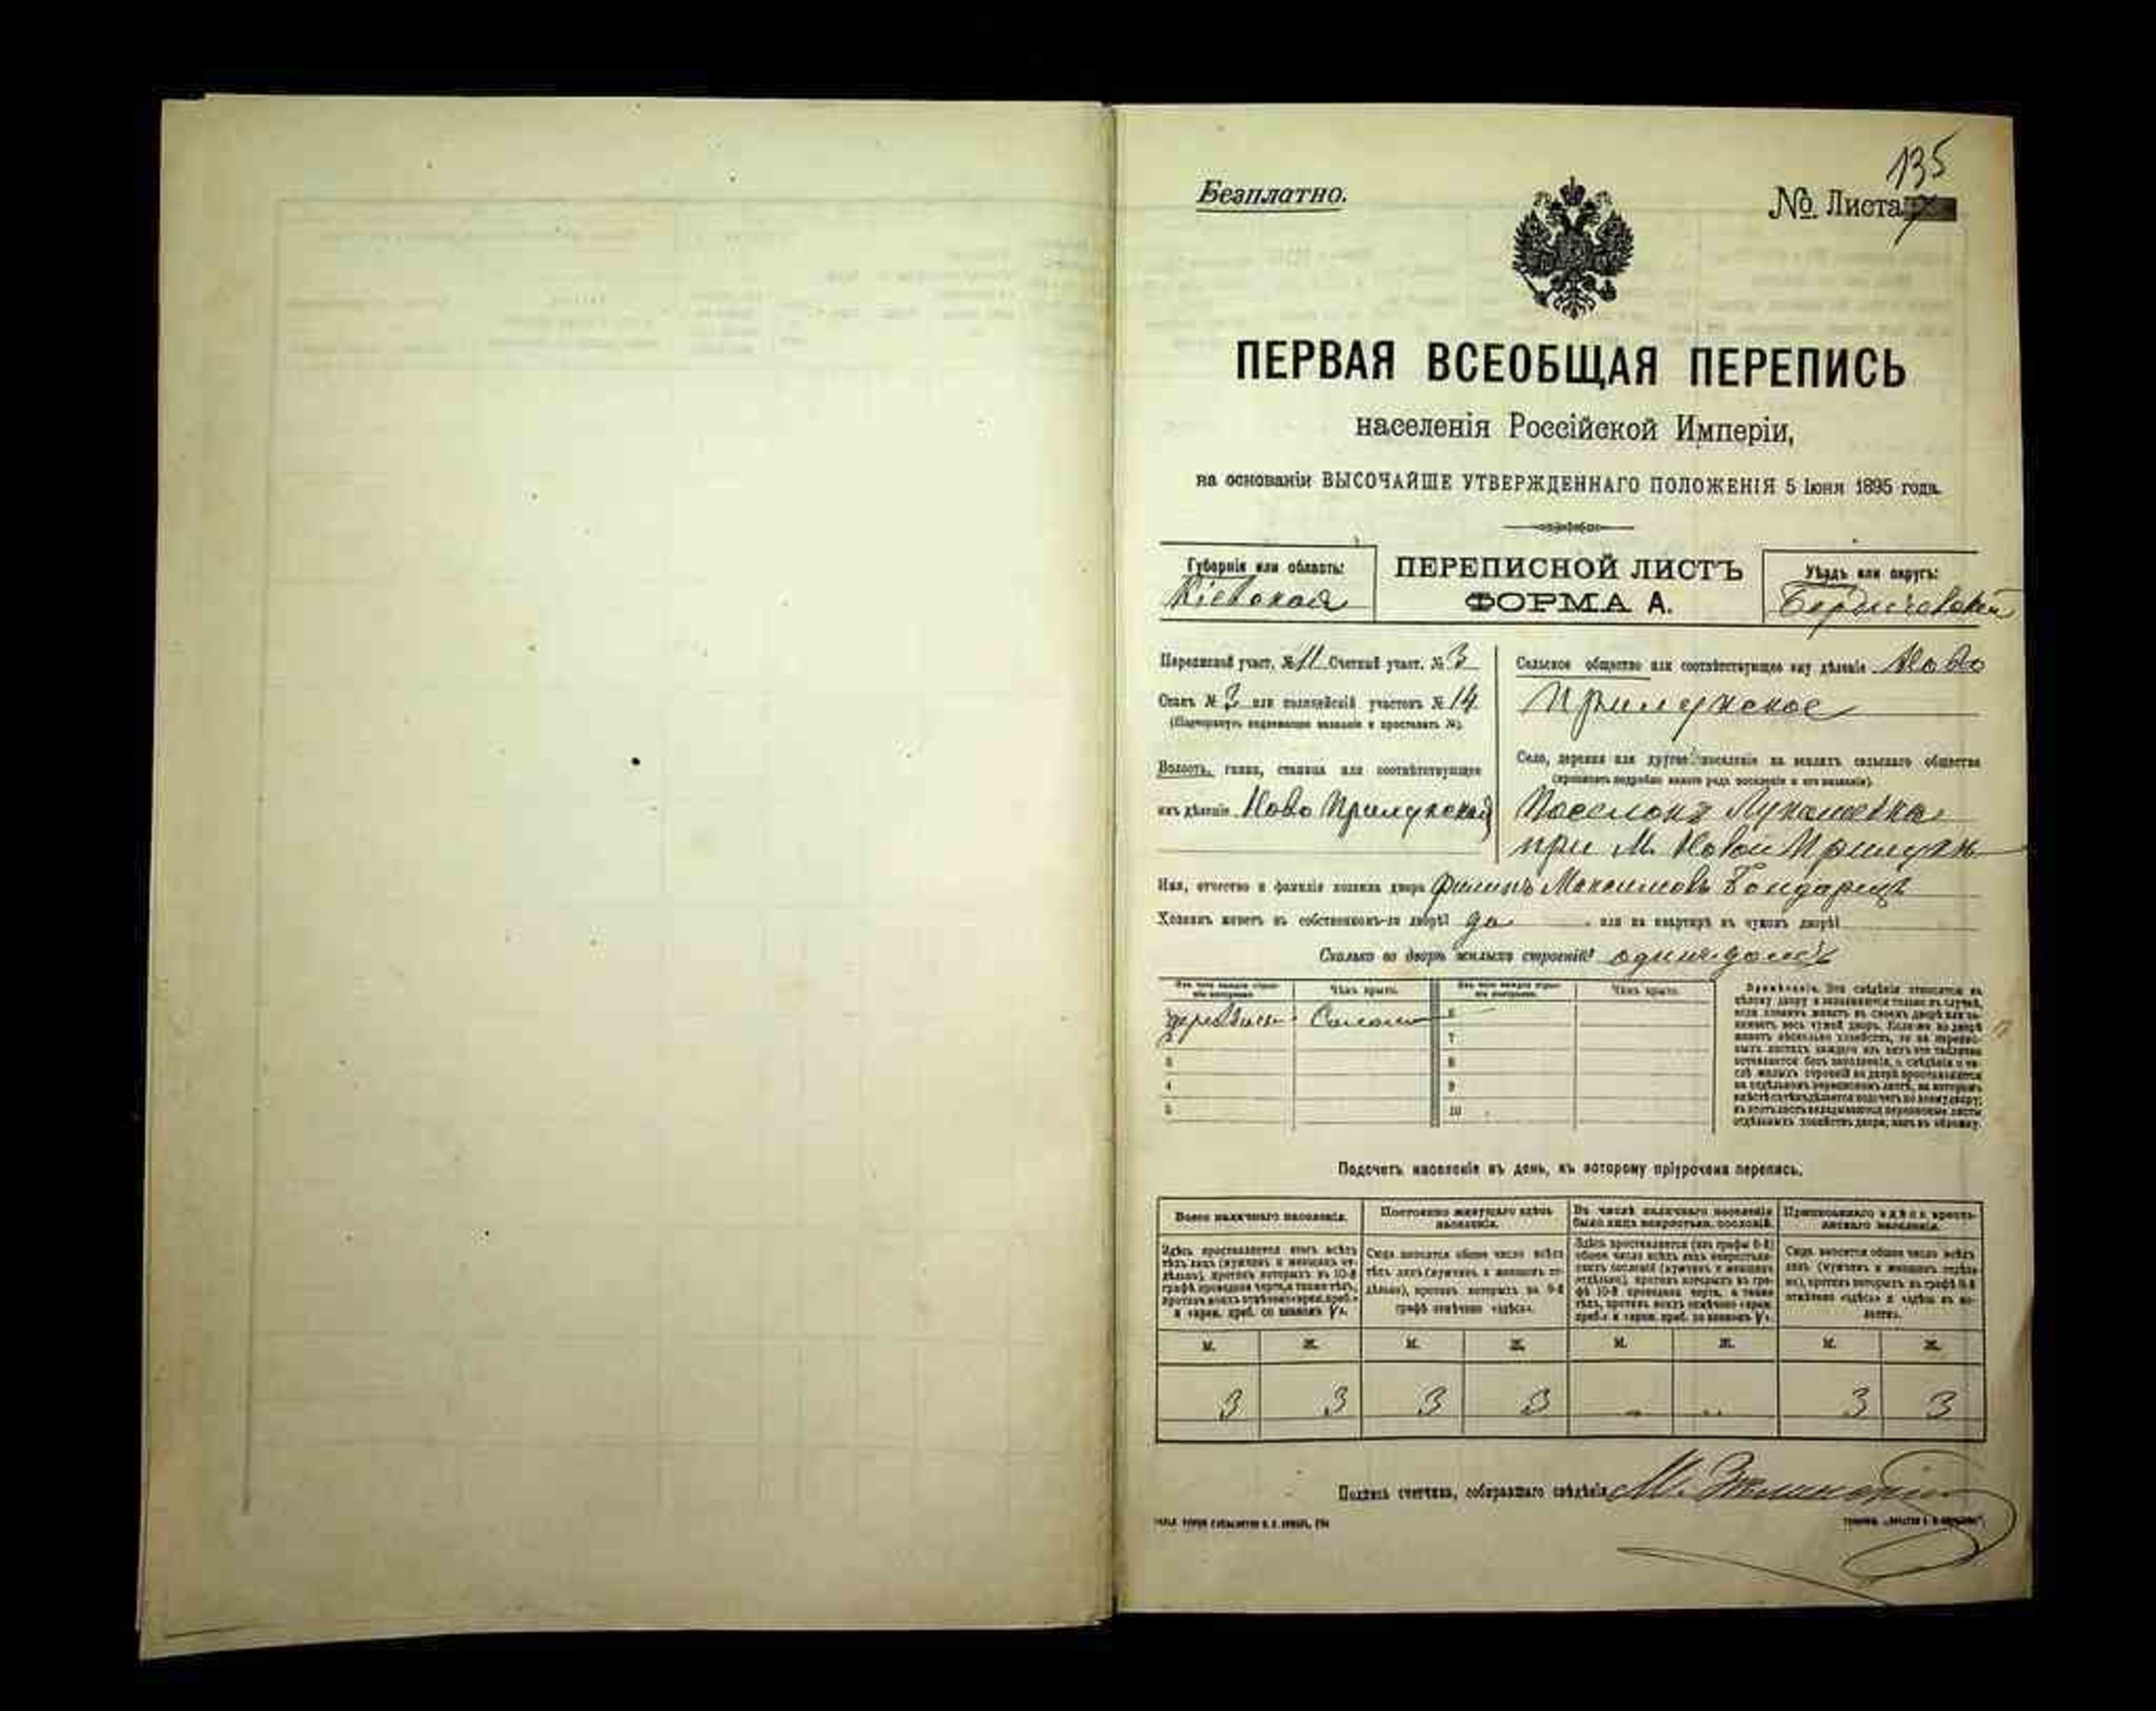 135
Безплатно.
№ Листа
ПЕРВАЯ ВСЕОБЩАЯ ПЕРЕПИСЬ
населенія Россійской Имперіи,
на основаніи ВЫСОЧАЙШЕ УТВЕРЖДЕННАГО ПОЛОЖЕНІЯ 5 Іюня 1895 года.
Губернія или область:
Кіевская
ПЕРЕПИСНОЙ ЛИСТЪ
ФОРМА А.
Уѣздъ или округъ:
Бердичевскій
Переписной участ. № 11 Счетный участ. № 3
Станъ № 3 или полицейскій участокъ № 14
(Подчеркнуть надлежащее названіе и проставить №).
Волость, гмина, станица или соотвѣтствующее
имъ дѣленіе Ново Прилукская
Сельское общество или соотвѣтствующее ему дѣленіе Ново
Прилукское
Село, деревня или другое поселеніе на земляхъ сельскаго общества
(прописать подробно какого рода поселеніе и его названіе).
Поселокъ Лукашевка
при М. Новой Прилукѣ
Имя, отчество и фамилія хозяина двора Филипъ Максимовъ Бондарецъ
Хозяинъ живетъ въ собственномъ-ли дворѣ? да или на квартирѣ въ чужомъ дворѣ?
Сколько во дворѣ жилыхъ строеній? одинъ домъ
Изъ чего каждое строеніе построено. Чѣмъ крыто. Изъ чего каждое строеніе построено. Чѣмъ крыто.
6
2 7
3 8
4 9
5 10
Примѣчаніе. Эти свѣдѣнія относятся къ
цѣлому двору и заполняются только въ случаѣ,
если хозяинъ живетъ въ своемъ дворѣ или занимаетъ
весь чужой дворъ. Если же во дворѣ
отдѣльныхъ хозяйствъ двора, какъ въ обложку.
Подсчетъ населенія въ день, къ которому пріурочена перепись.
Всего наличнаго населенія. Постоянно живущаго здѣсь населенія. Въ числѣ наличнаго населенія было лицъ некрестьян. сословій. Приписаннаго здѣсь крестьянскаго населенія.
Здѣсь проставляется итогъ всѣхъ
тѣхъ лицъ (мужчинъ и женщинъ отдѣльно),
противъ которыхъ въ 10-й
графѣ проведена черта, а также тѣхъ,
противъ коихъ отмѣчено «врем. преб.»
и «врем. преб. со знакомъ V».
Сюда вносится общее число всѣхъ
тѣхъ лицъ (мужчинъ и женщинъ отдѣльно),
противъ которыхъ въ 9-й
графѣ отмѣчено «здѣсь».
Здѣсь проставляется (изъ графы 6-й)
общее число всѣхъ лицъ некрестьянскихъ
сословій (мужчинъ и женщинъ
отдѣльно), противъ которыхъ въ графѣ
10-й проведена черта, а также
тѣхъ, противъ коихъ отмѣчено «врем.
преб.» и «врем. преб. со знакомъ V».
Сюда вносится общее число всѣхъ
лицъ (мужчинъ и женщинъ отдѣльно),
противъ которыхъ въ графѣ 8-й
отмѣчено «здѣсь» и «здѣсь въ волости».
М. Ж. М. Ж. М. Ж. М. Ж.
3 3 3 3 3 3
Подпись счетчика, собиравшаго свѣдѣнія